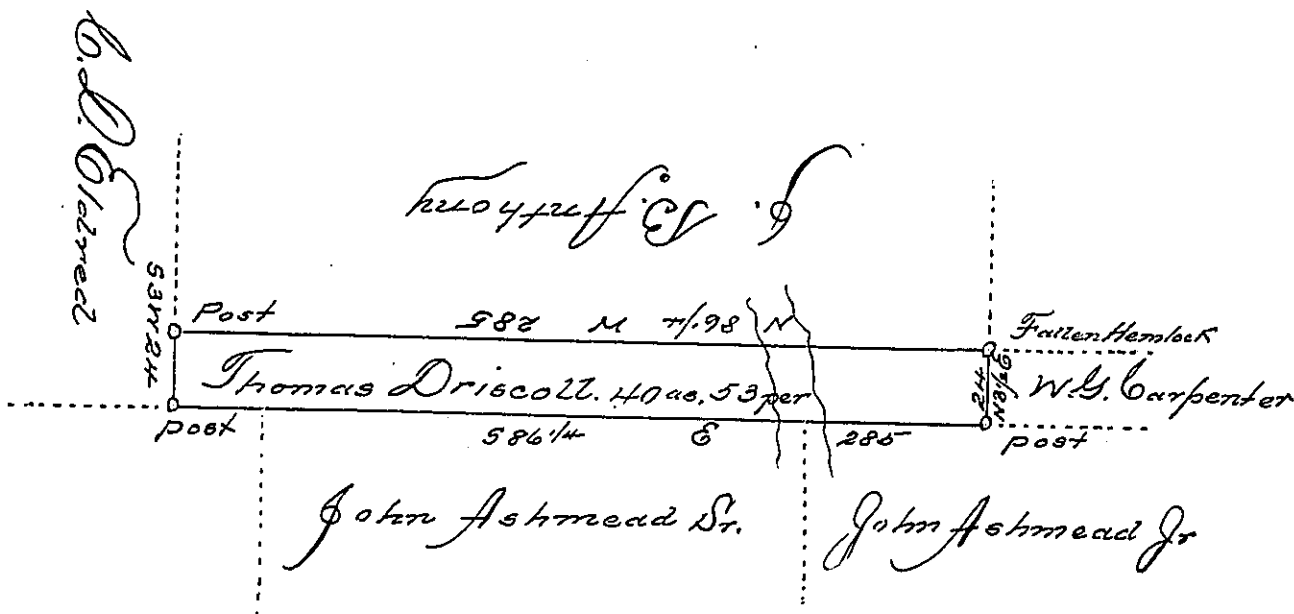 C. D. Eldred
J. B. Anthony
S3W 24
Post
N 86 1/4 W 285
Fallen Hemlock
Thomas Driscoll. 40 as. 53 per
24
W. G. Carpenter
post
S 86 1/4 E 285
post
John Ashmead Sr.
John Ashmead Jr